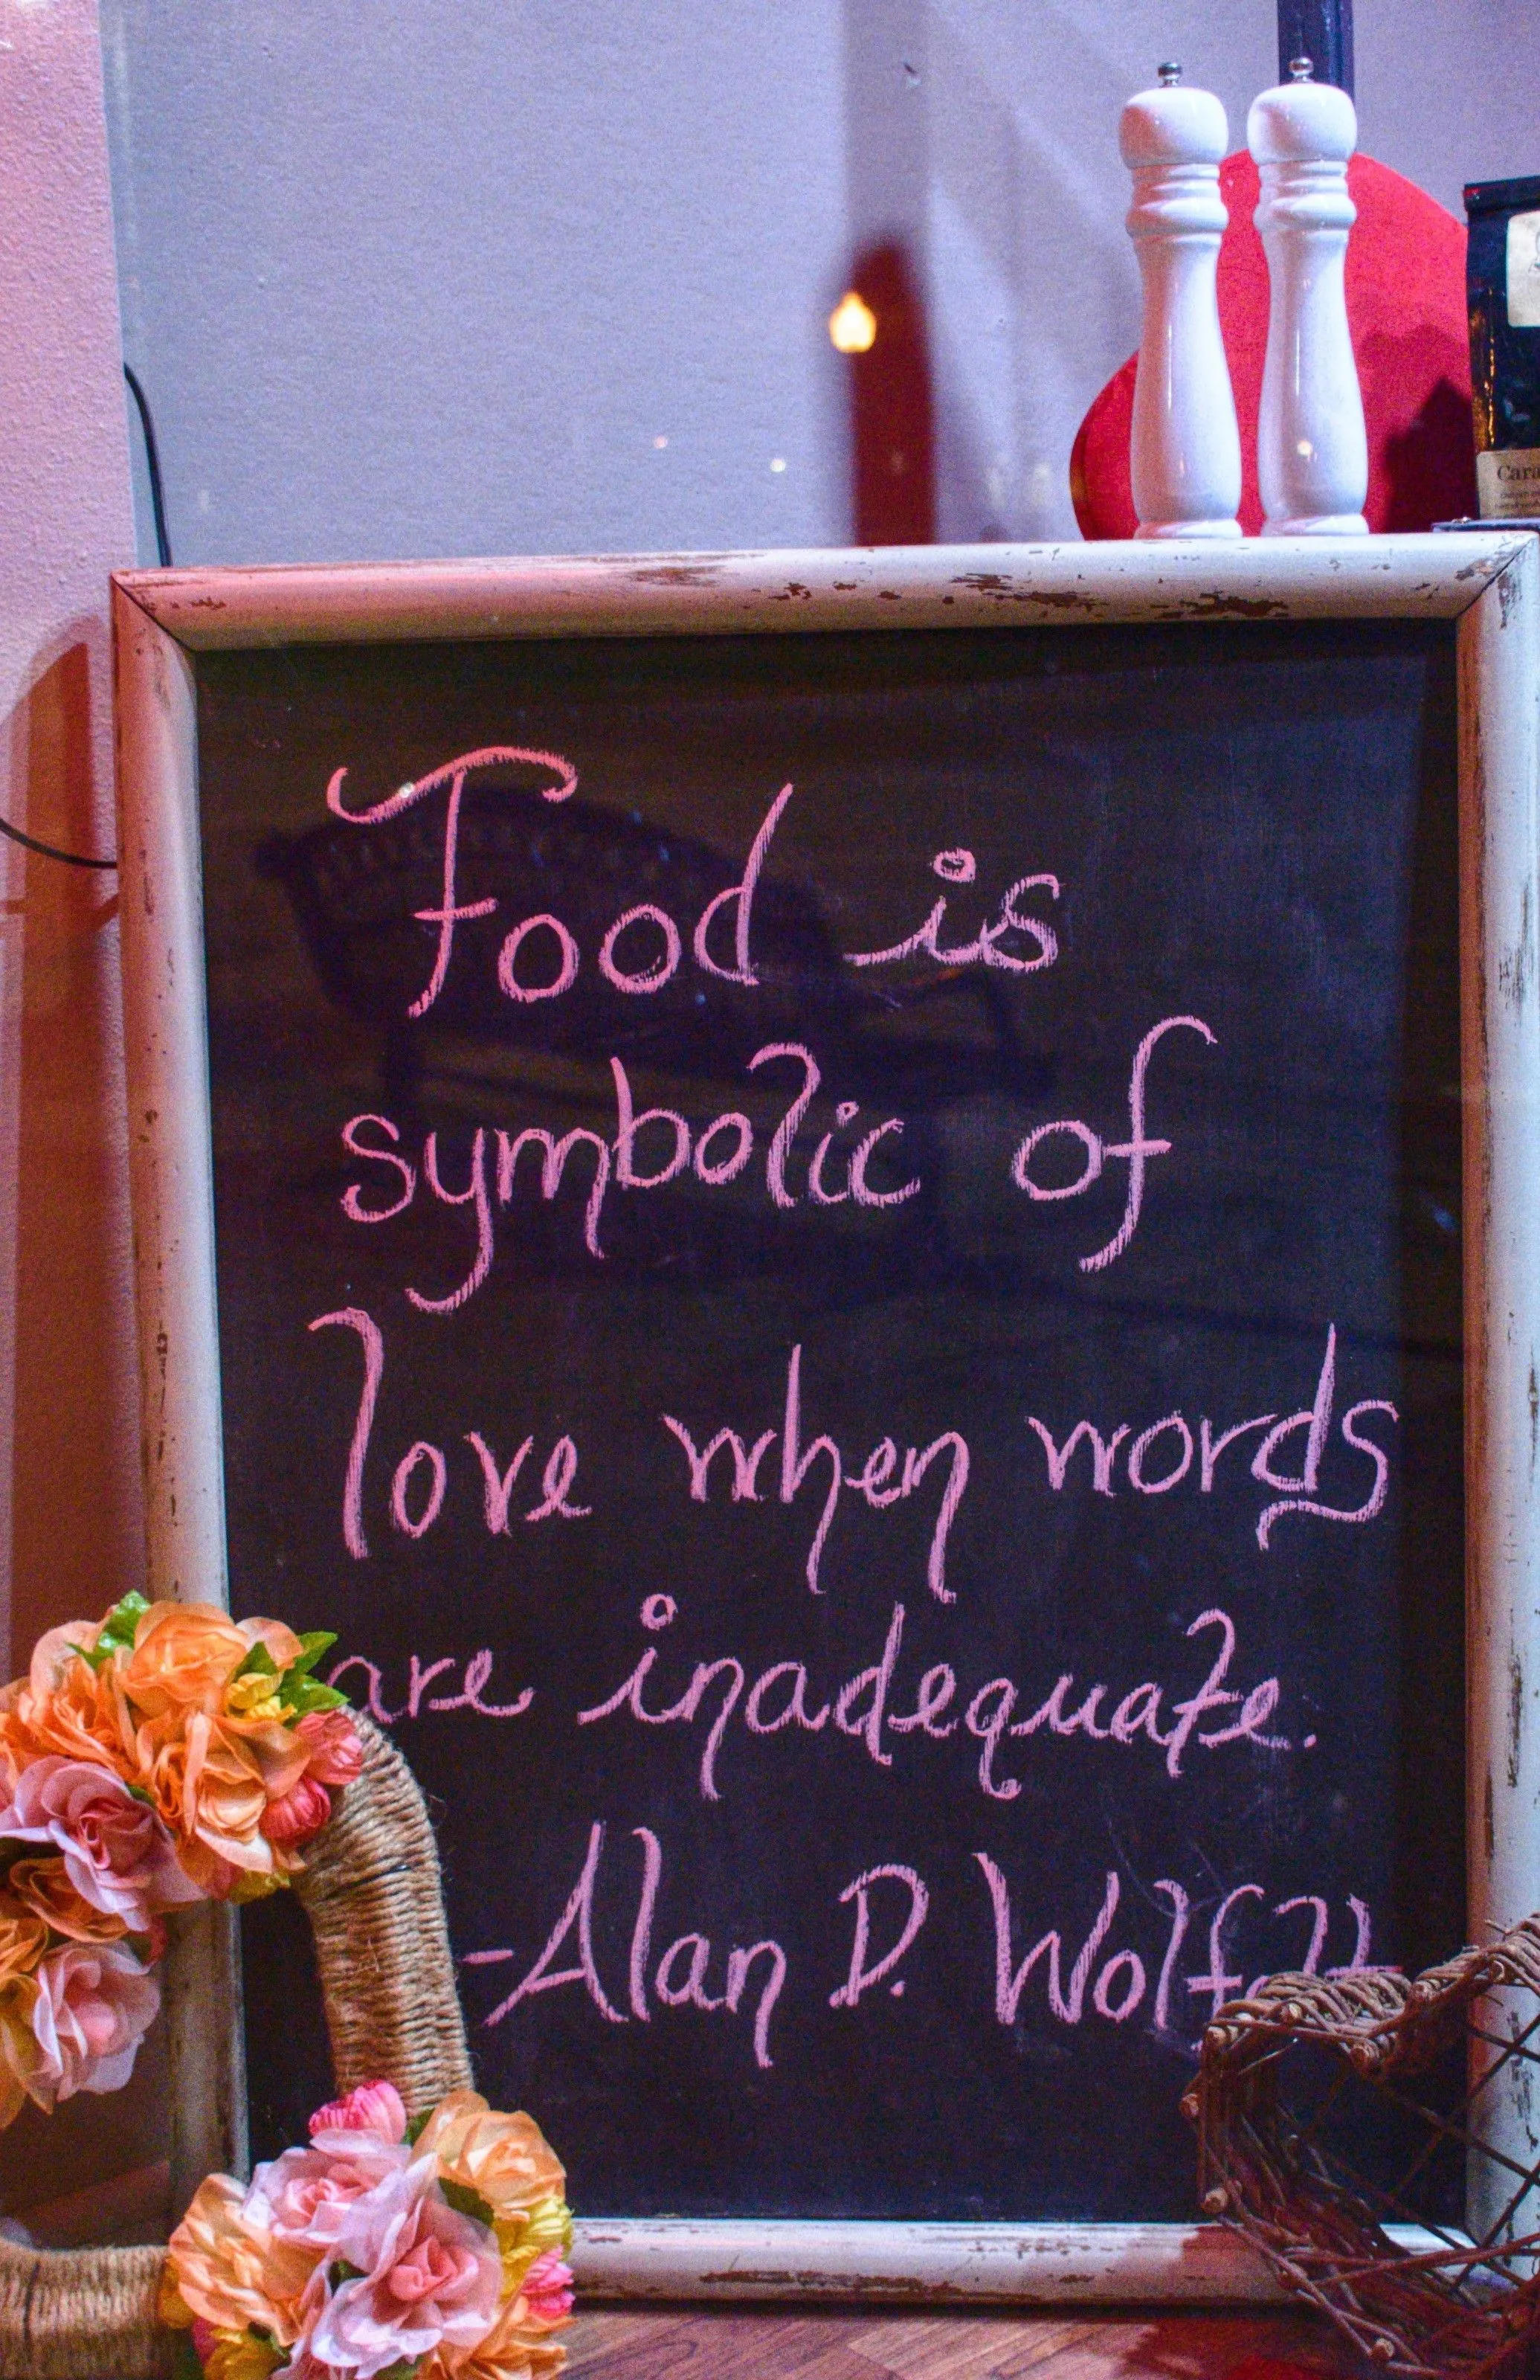 Food is
symbolic of
love when words
are inadequate.
-Alan D. Wolfelt